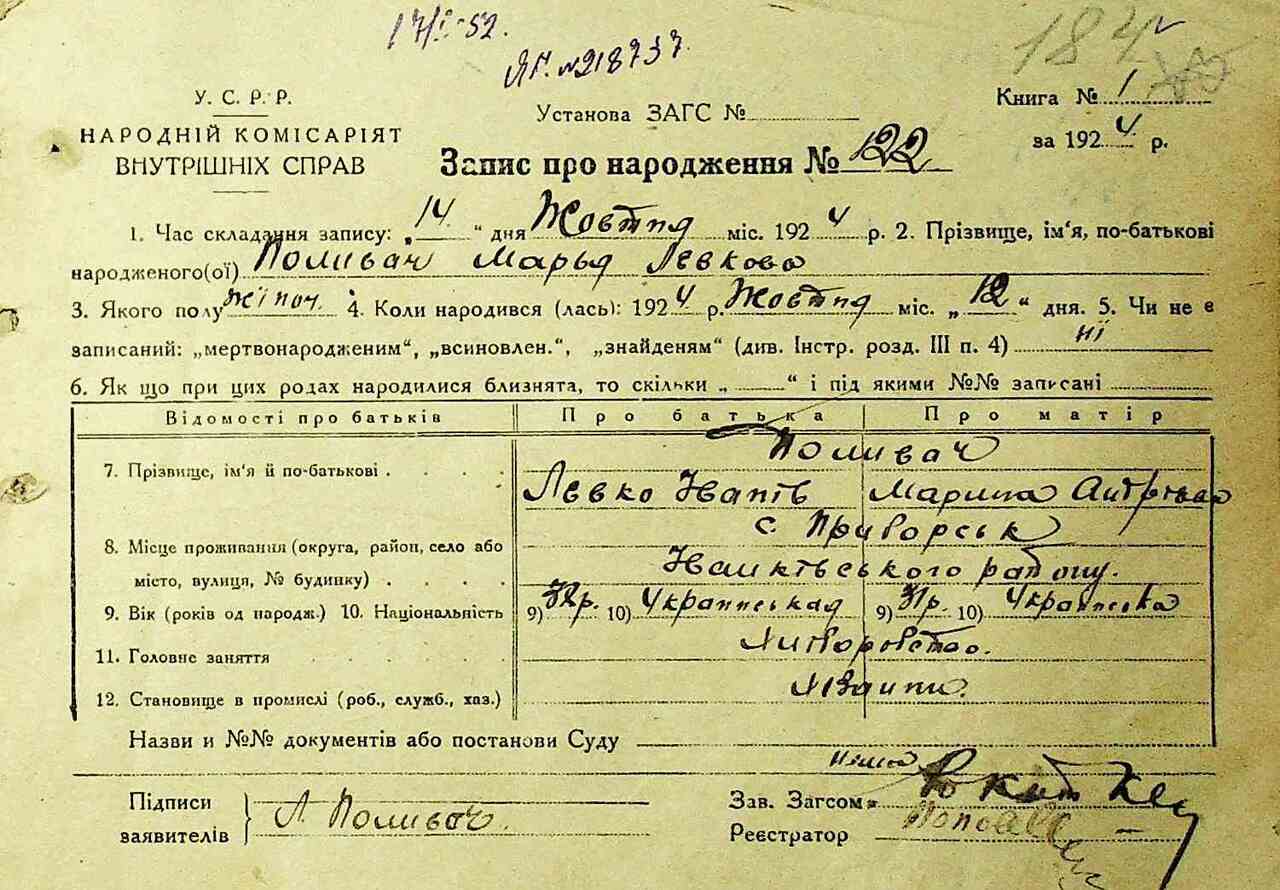 17/I-52.
ЯГ. №218737
184
У. С. Р. Р.
НАРОДНІЙ КОМІСАРІЯТ
ВНУТРІШНІХ СПРАВ
Установа ЗАГС №
Книга № 1
за 1924 р.
Запис про народження № 122
1. Час складання запису: „14“ дня Жовтня міс. 1924 р. 2. Прізвище, ім‘я, по-батькові
народженого(ої) Поливач Марья Левкова
3. Якого полу жіноч. 4. Коли народився (лась): 1924 р. Жовтня міс. „12“ дня. 5. Чи не є
записаний: „мертвонародженим“, „всиновлен.“, „знайденям“ (див. Інстр. розд. III п. 4) ні
6. Як що при цих родах народилися близнята, то скільки „ “ і під якими №№ записані
Відомості про батьків Про батька Про матір
7. Прізвище, ім‘я й по-батькові Поливач
Левко Іванів Марина
8. Місце проживання (округа, район, село або с. Приборськ
місто, вулиця, № будинку) Іванківського району.
9. Вік (років од народж.) 10. Національність 9) 32р. 10) Українська 9) 31р. 10) Українська
11. Головне заняття Хліборобство.
12. Становище в промислі (роб., служб., хаз.)
Назви и №№ документів або постанови Суду
нема
Підписи
заявителів Л Поливач.
Зав. Загсом
Реєстратор